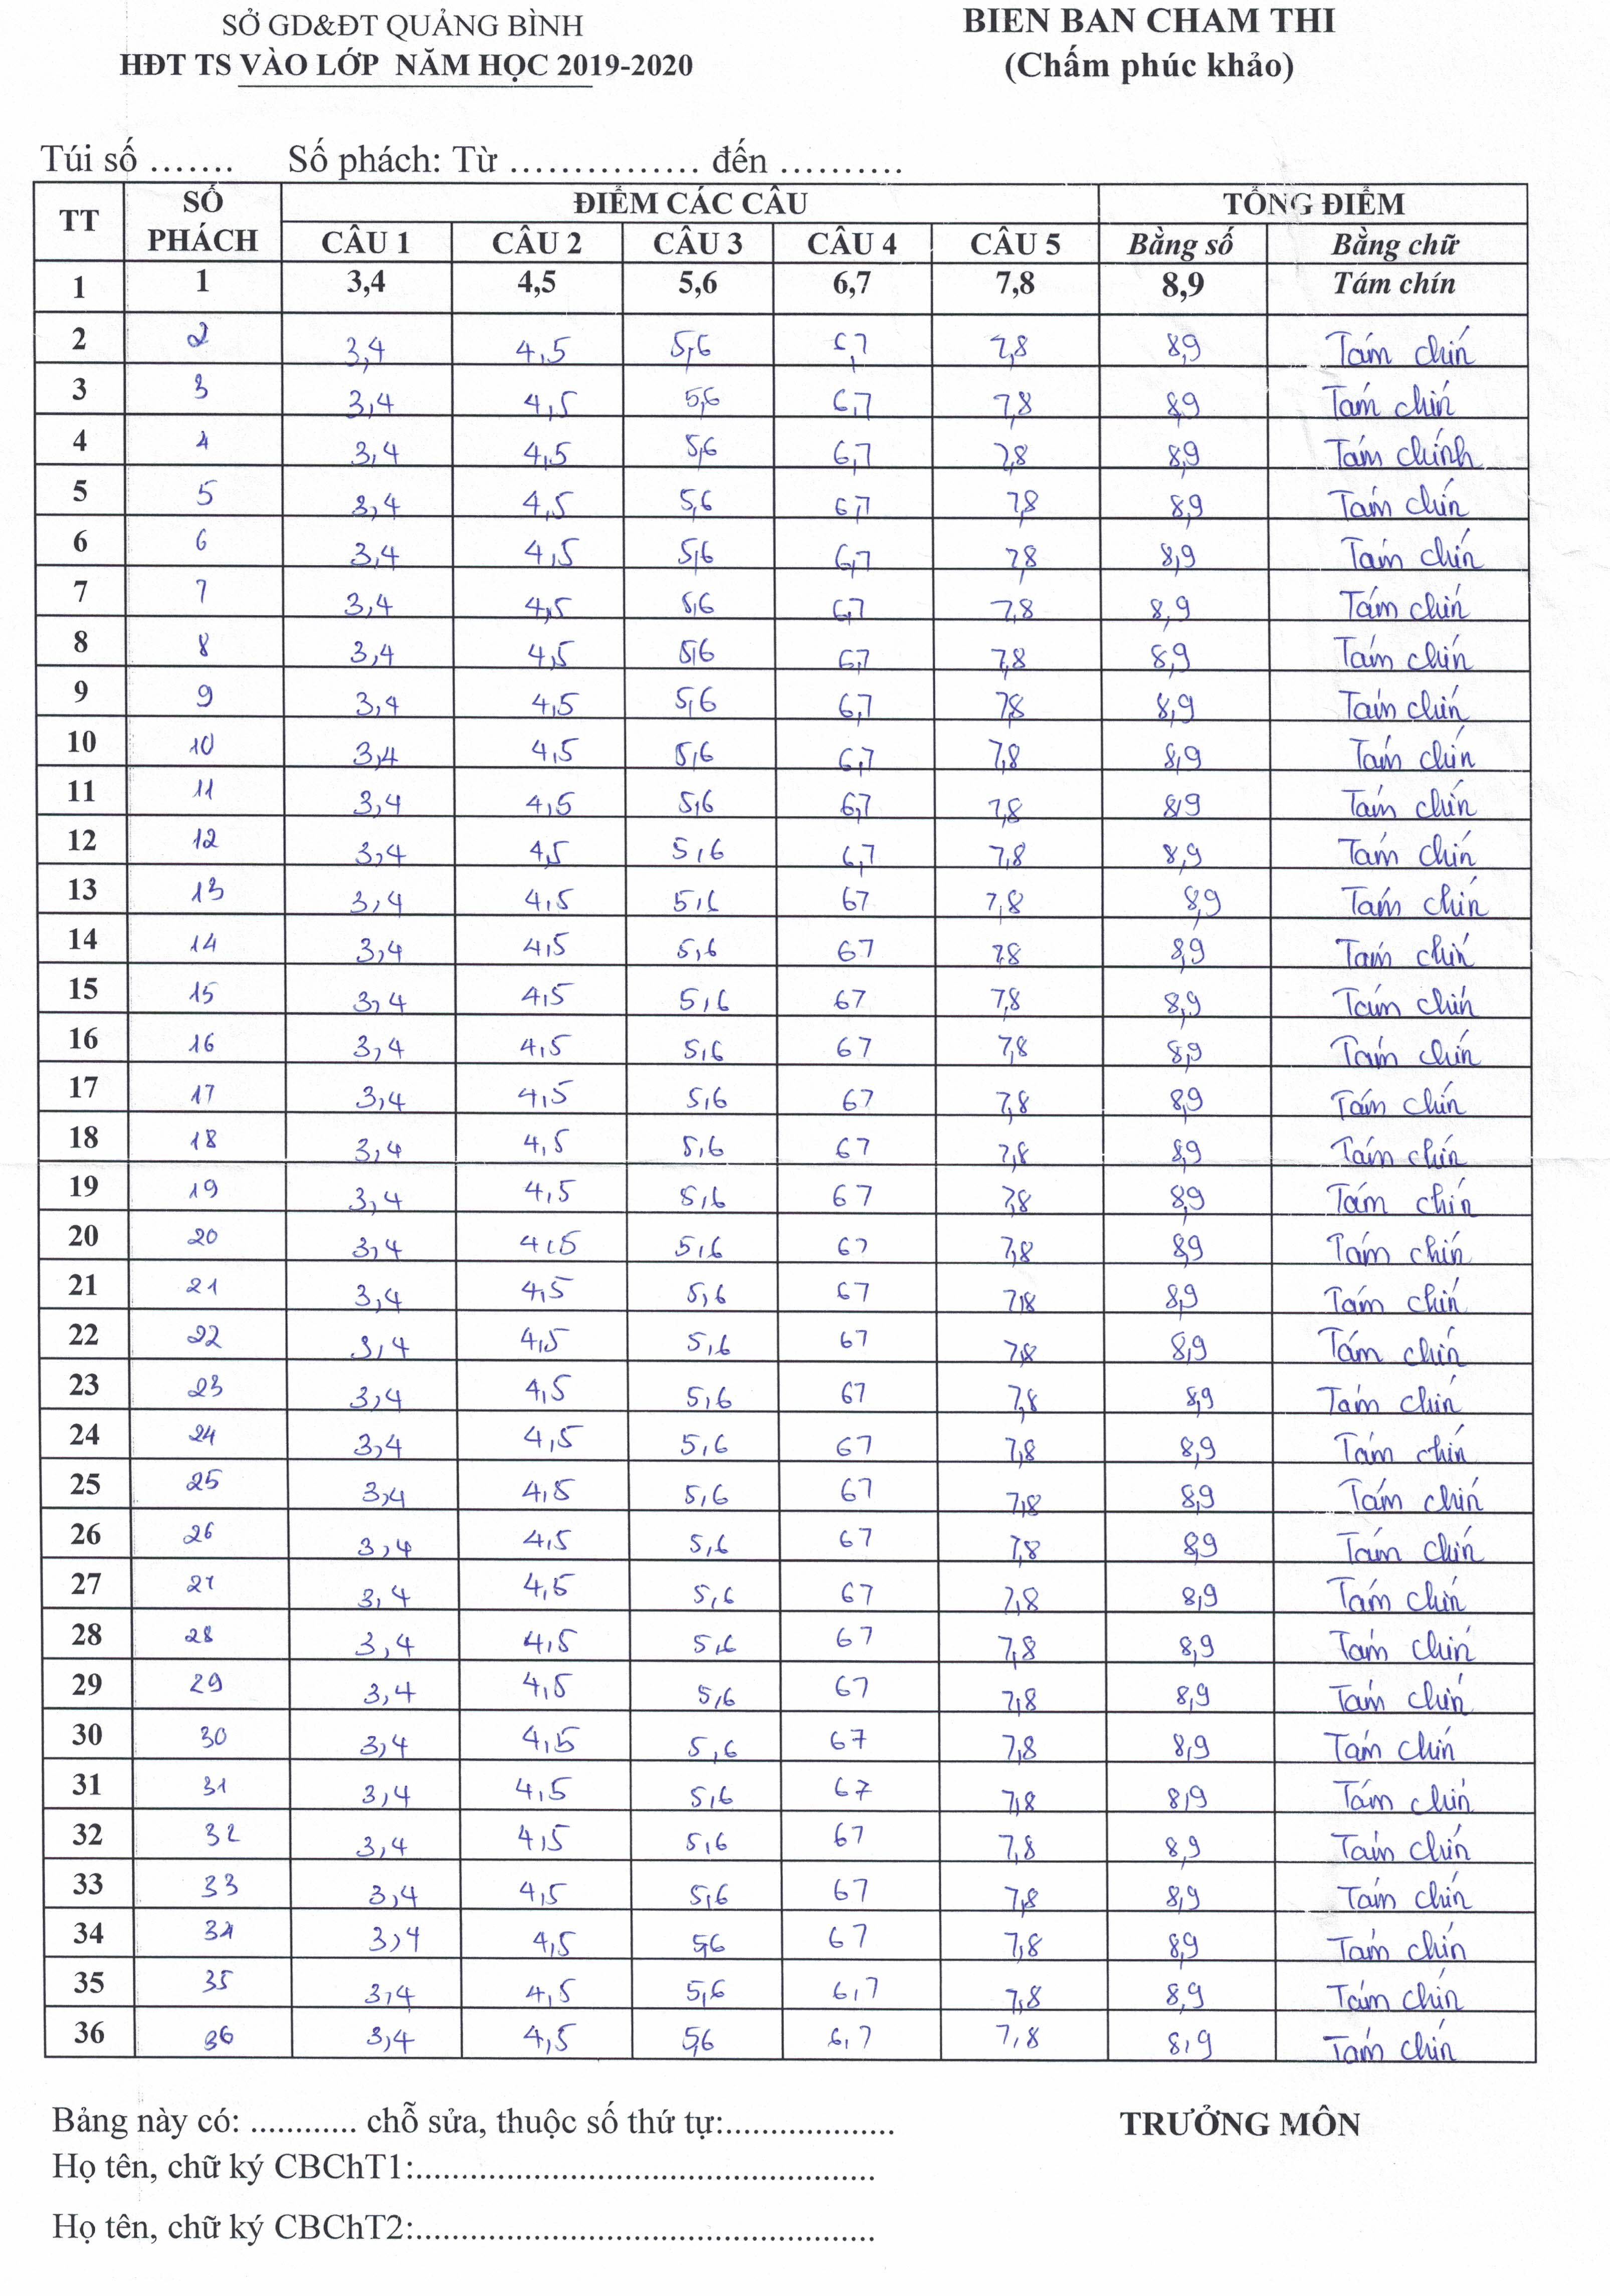 SỞ GD&ĐT QUẢNG BÌNH
HĐT TS VÀO LỚP NĂM HỌC 2019-2020
BIEN BAN CHAM THI
(Chấm phúc khảo)
Túi số ....... Số phách: Từ ................ đến ...........
TT SỐ PHÁCH ĐIỂM CÁC CÂU TỔNG ĐIỂM
CÂU 1 CÂU 2 CÂU 3 CÂU 4 CÂU 5 Bằng số Bằng chữ
1 1 3,4 4,5 5,6 6,7 7,8 8,9 Tám chín
2 2 3,4 4,5 5,6 6,7 7,8 8,9 Tám chín
3 3 3,4 4,5 5,6 6,7 7,8 8,9 Tám chín
4 4 3,4 4,5 5,6 6,7 7,8 8,9 Tám chính
5 5 3,4 4,5 5,6 6,7 7,8 8,9 Tám chín
6 6 3,4 4,5 5,6 6,7 7,8 8,9 Tám chín
7 7 3,4 4,5 5,6 6,7 7,8 8,9 Tám chín
8 8 3,4 4,5 5,6 6,7 7,8 8,9 Tám chín
9 9 3,4 4,5 5,6 6,7 7,8 8,9 Tám chín
10 10 3,4 4,5 5,6 6,7 7,8 8,9 Tám chín
11 11 3,4 4,5 5,6 6,7 7,8 8,9 Tám chín
12 12 3,4 4,5 5,6 6,7 7,8 8,9 Tám chín
13 13 3,4 4,5 5,6 67 7,8 8,9 Tám chín
14 14 3,4 4,5 5,6 67 7,8 8,9 Tám chín
15 15 3,4 4,5 5,6 67 7,8 8,9 Tám chín
16 16 3,4 4,5 5,6 67 7,8 8,9 Tám chín
17 17 3,4 4,5 5,6 67 7,8 8,9 Tám chín
18 18 3,4 4,5 5,6 67 7,8 8,9 Tám chín
19 19 3,4 4,5 5,6 67 7,8 8,9 Tám chín
20 20 3,4 4,5 5,6 67 7,8 8,9 Tám chín
21 21 3,4 4,5 5,6 67 7,8 8,9 Tám chín
22 22 3,4 4,5 5,6 67 7,8 8,9 Tám chín
23 23 3,4 4,5 5,6 67 7,8 8,9 Tám chín
24 24 3,4 4,5 5,6 67 7,8 8,9 Tám chín
25 25 3,4 4,5 5,6 67 7,8 8,9 Tám chín
26 26 3,4 4,5 5,6 67 7,8 8,9 Tám chín
27 27 3,4 4,5 5,6 67 7,8 8,9 Tám chín
28 28 3,4 4,5 5,6 67 7,8 8,9 Tám chín
29 29 3,4 4,5 5,6 67 7,8 8,9 Tám chín
30 30 3,4 4,5 5,6 67 7,8 8,9 Tám chín
31 31 3,4 4,5 5,6 67 7,8 8,9 Tám chín
32 32 3,4 4,5 5,6 67 7,8 8,9 Tám chín
33 33 3,4 4,5 5,6 67 7,8 8,9 Tám chín
34 34 3,4 4,5 5,6 67 7,8 8,9 Tám chín
35 35 3,4 4,5 5,6 6,7 7,8 8,9 Tám chín
36 36 3,4 4,5 5,6 6,7 7,8 8,9 Tám chín
Bảng này có: ............ chỗ sửa, thuộc số thứ tự:................... TRƯỞNG MÔN
Họ tên, chữ ký CBChT1:..................................................
Họ tên, chữ ký CBChT2:..................................................